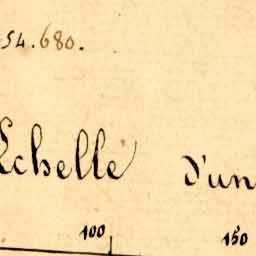 54.680.
Echelle d'un
100 150